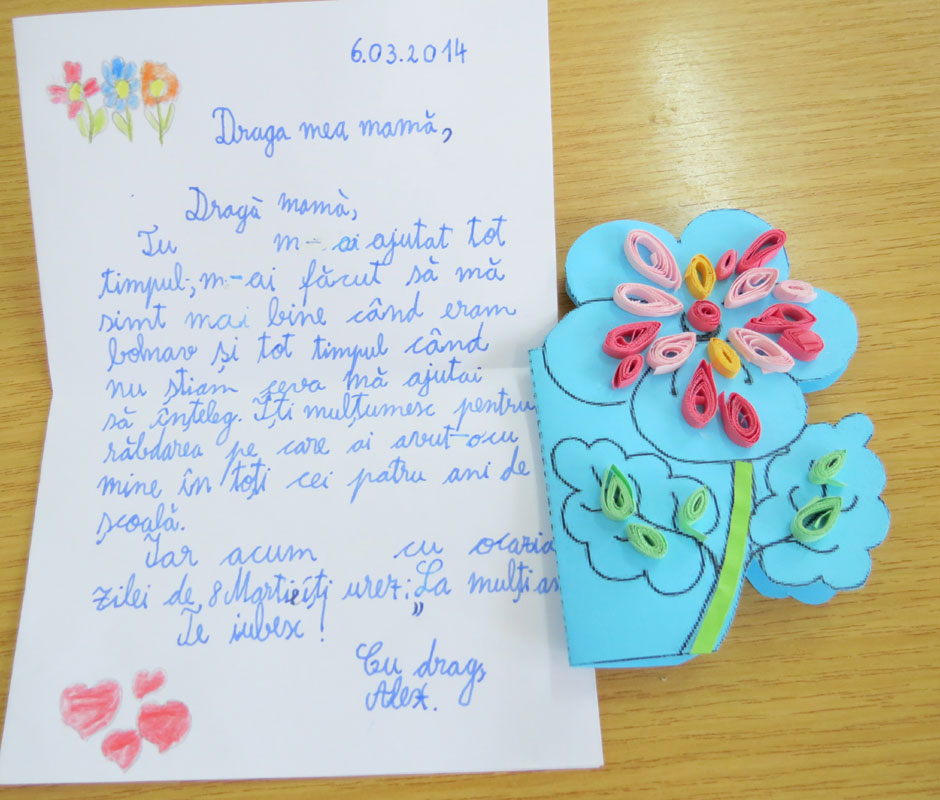 6.03.2014
Draga mea mamă,
Dragă mamă,
Tu m-ai ajutat tot
timpul; m-ai făcut să mă
simt mai bine când eram
bolnav și tot timpul când
nu știam ceva mă ajutai
să înțeleg. Îți mulțumesc pentru
răbdarea pe care ai avut-o cu
mine în toți cei patru ani de
școală.
Iar acum cu ocazia
zilei de 8 Martie îți urez: „La mulți an
Te iubesc!
Cu drag,
Alex.